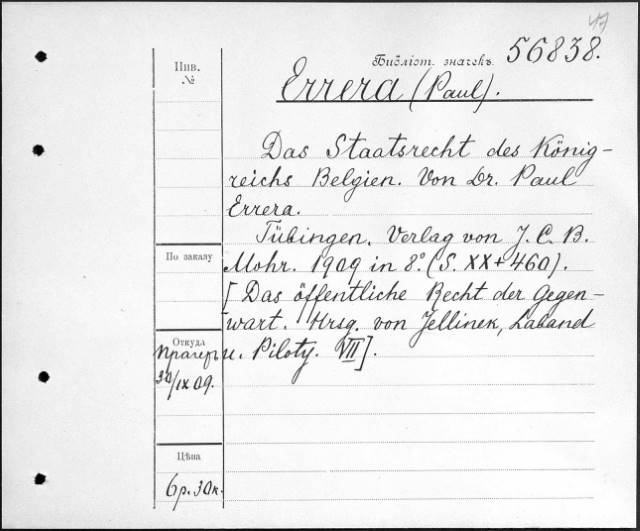 47
Библіот. значекъ 56838.
Инв.
№
Errera (Paul).
Das Staatsrecht des König-
reichs Belgien. Von Dr. Paul
Errera.
Tübingen. Verlag von J. C. B.
По заказу
Mohr. 1909 in 8° (S. XX + 460).
[Das öffentliche Recht der Gegen-
wart. Hrsg. von Jellinek, Laband
Откуда
Прагеръ
u. Piloty. VII].
30/IX 09.
Цѣна
6 р. 30 к.